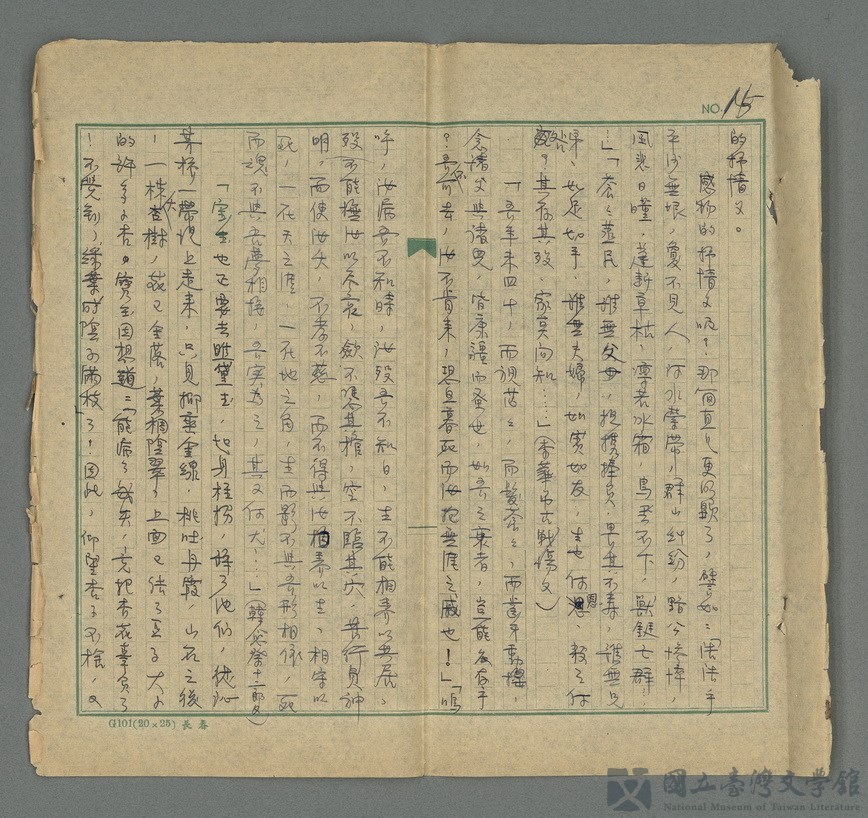 NO. 15
的抒情文。
感物的抒情文呢?那簡直是更明顯了,譬如:「浩浩乎
平沙無垠,敻不見人,河水縈帶,群山糾紛,黯兮慘悴,
風悲日曛,蓬斷草枯,凜若冰霜,鳥飛不下,獸鋌亡群…
…」「蒼蒼蒸民,誰無父母,提攜捧負,畏其不壽,誰無兄
弟,如足如手,誰無夫婦,如賓如友,生也何恩,殺之何
咎?其存其歿,家莫聞知……」(李華弔古戰場文)
「吾年未四十,而視茫茫,而髮蒼蒼,而齒牙動搖,
念諸父與諸兄,皆康彊而蚤世,如吾之衰者,豈能久存乎
?吾不可去,汝不肯來,恐旦暮死而汝抱無涯之戚也!」「嗚
呼,汝病吾不知時,汝歿吾不知日,生不能相養以共居,
歿不能撫汝以尽哀,斂不憑其棺,窆不臨其穴,吾行負神
明,而使汝夭,不孝不慈,而不得與汝相養以生、相守以
死,一在天之涯,一在地之角,生而影不與吾形相依,死
而魂不與吾夢相接,吾实為之,其又何尤……」(韓愈祭十二郎文)
「宝玉也正要去瞧黛玉,起身拄拐,辞了他们,從沁
芳橋一帶堤上走來,只見柳垂金線,桃吐丹霞,山石之後
,一株大杏樹,花已全落,葉稠陰翠,上面已結了豆子大小
的許多小杏。寶玉因想道:「能病了幾天,竟把杏花辜負了
!不覺到了『綠葉成陰子滿枝』了!因此,仰望杏子不捨,又
G101(20×25) 長春
國立臺灣文學館
National Museum of Taiwan Literature